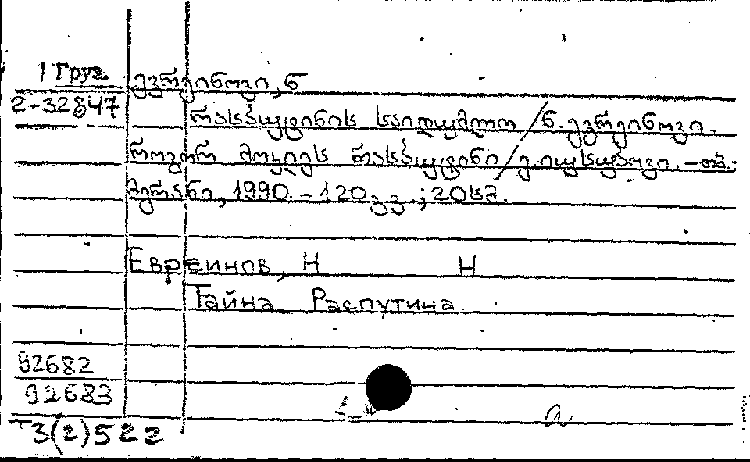 1 Груз.
ევრეინოვი, ნ
2-32847
რასპუტინის საიდუმლო / ნ. ევრეინოვი.
როგორ მოკლეს რასპუტინი / ფ. იუსუპოვი. – თბ.:
მერანი, 1990. – 120 გვ.; 20სმ.
Евреинов, Н Н
Тайна Распутина
92682
92683
3(2)522